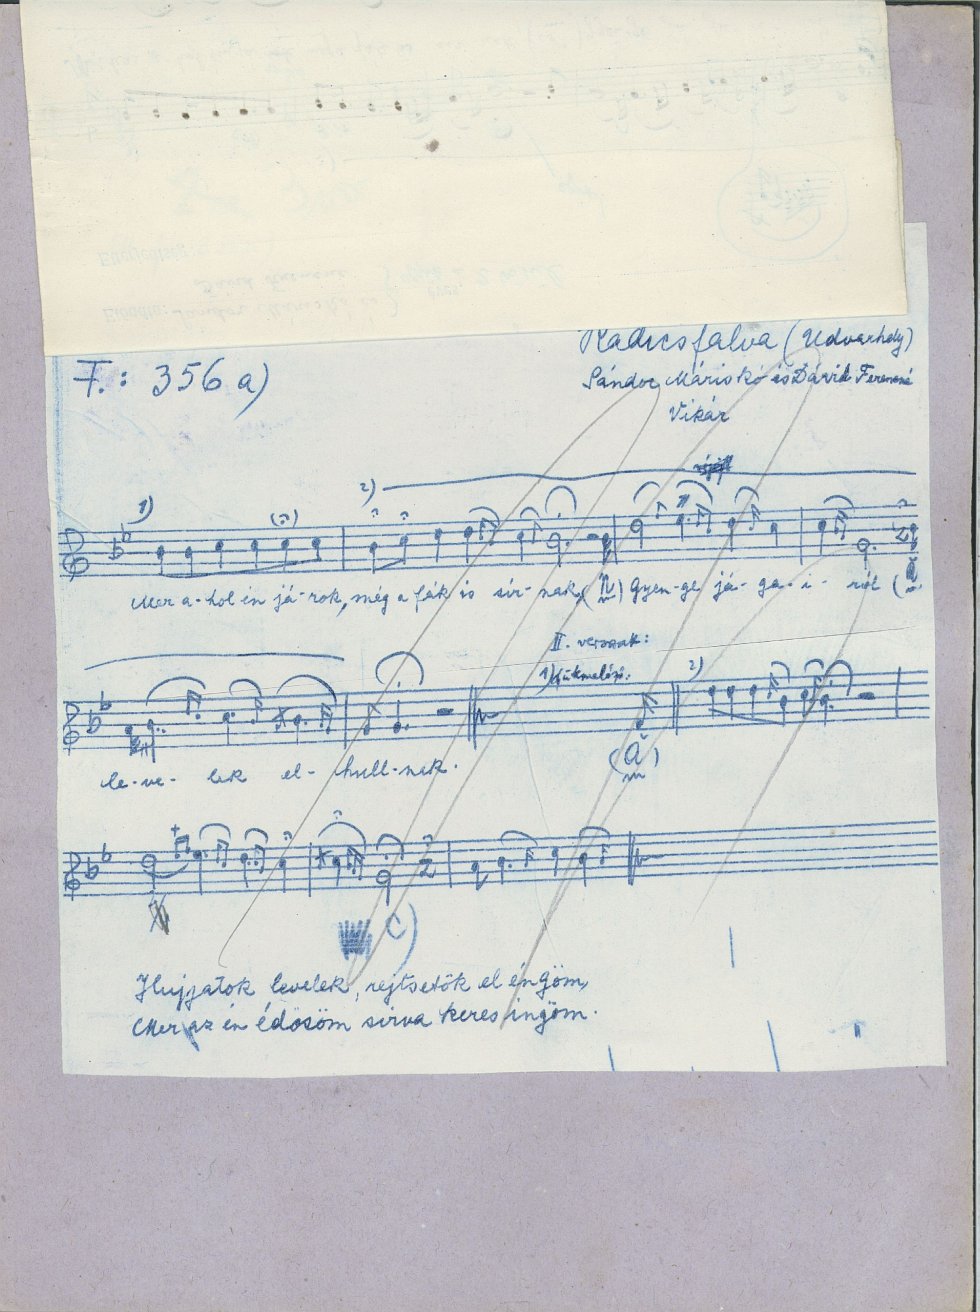 Kadicsfalva (Udvarhely)
F.: 356 a)
Sándor Mariskó és Dávid Ferencné
Vikár
1) 2)
Mer a-hol én já-rok, még a fák is sír-nak, (N) Gyen-ge já-ga-i-ról (ă
II. versszak:
1) 2)
le-ve-lek el-hull-nak.
(ă)
c)
Hujjatok levelek, rejtsetök el éngöm,
Mer az én édösöm sírva keres ingöm.